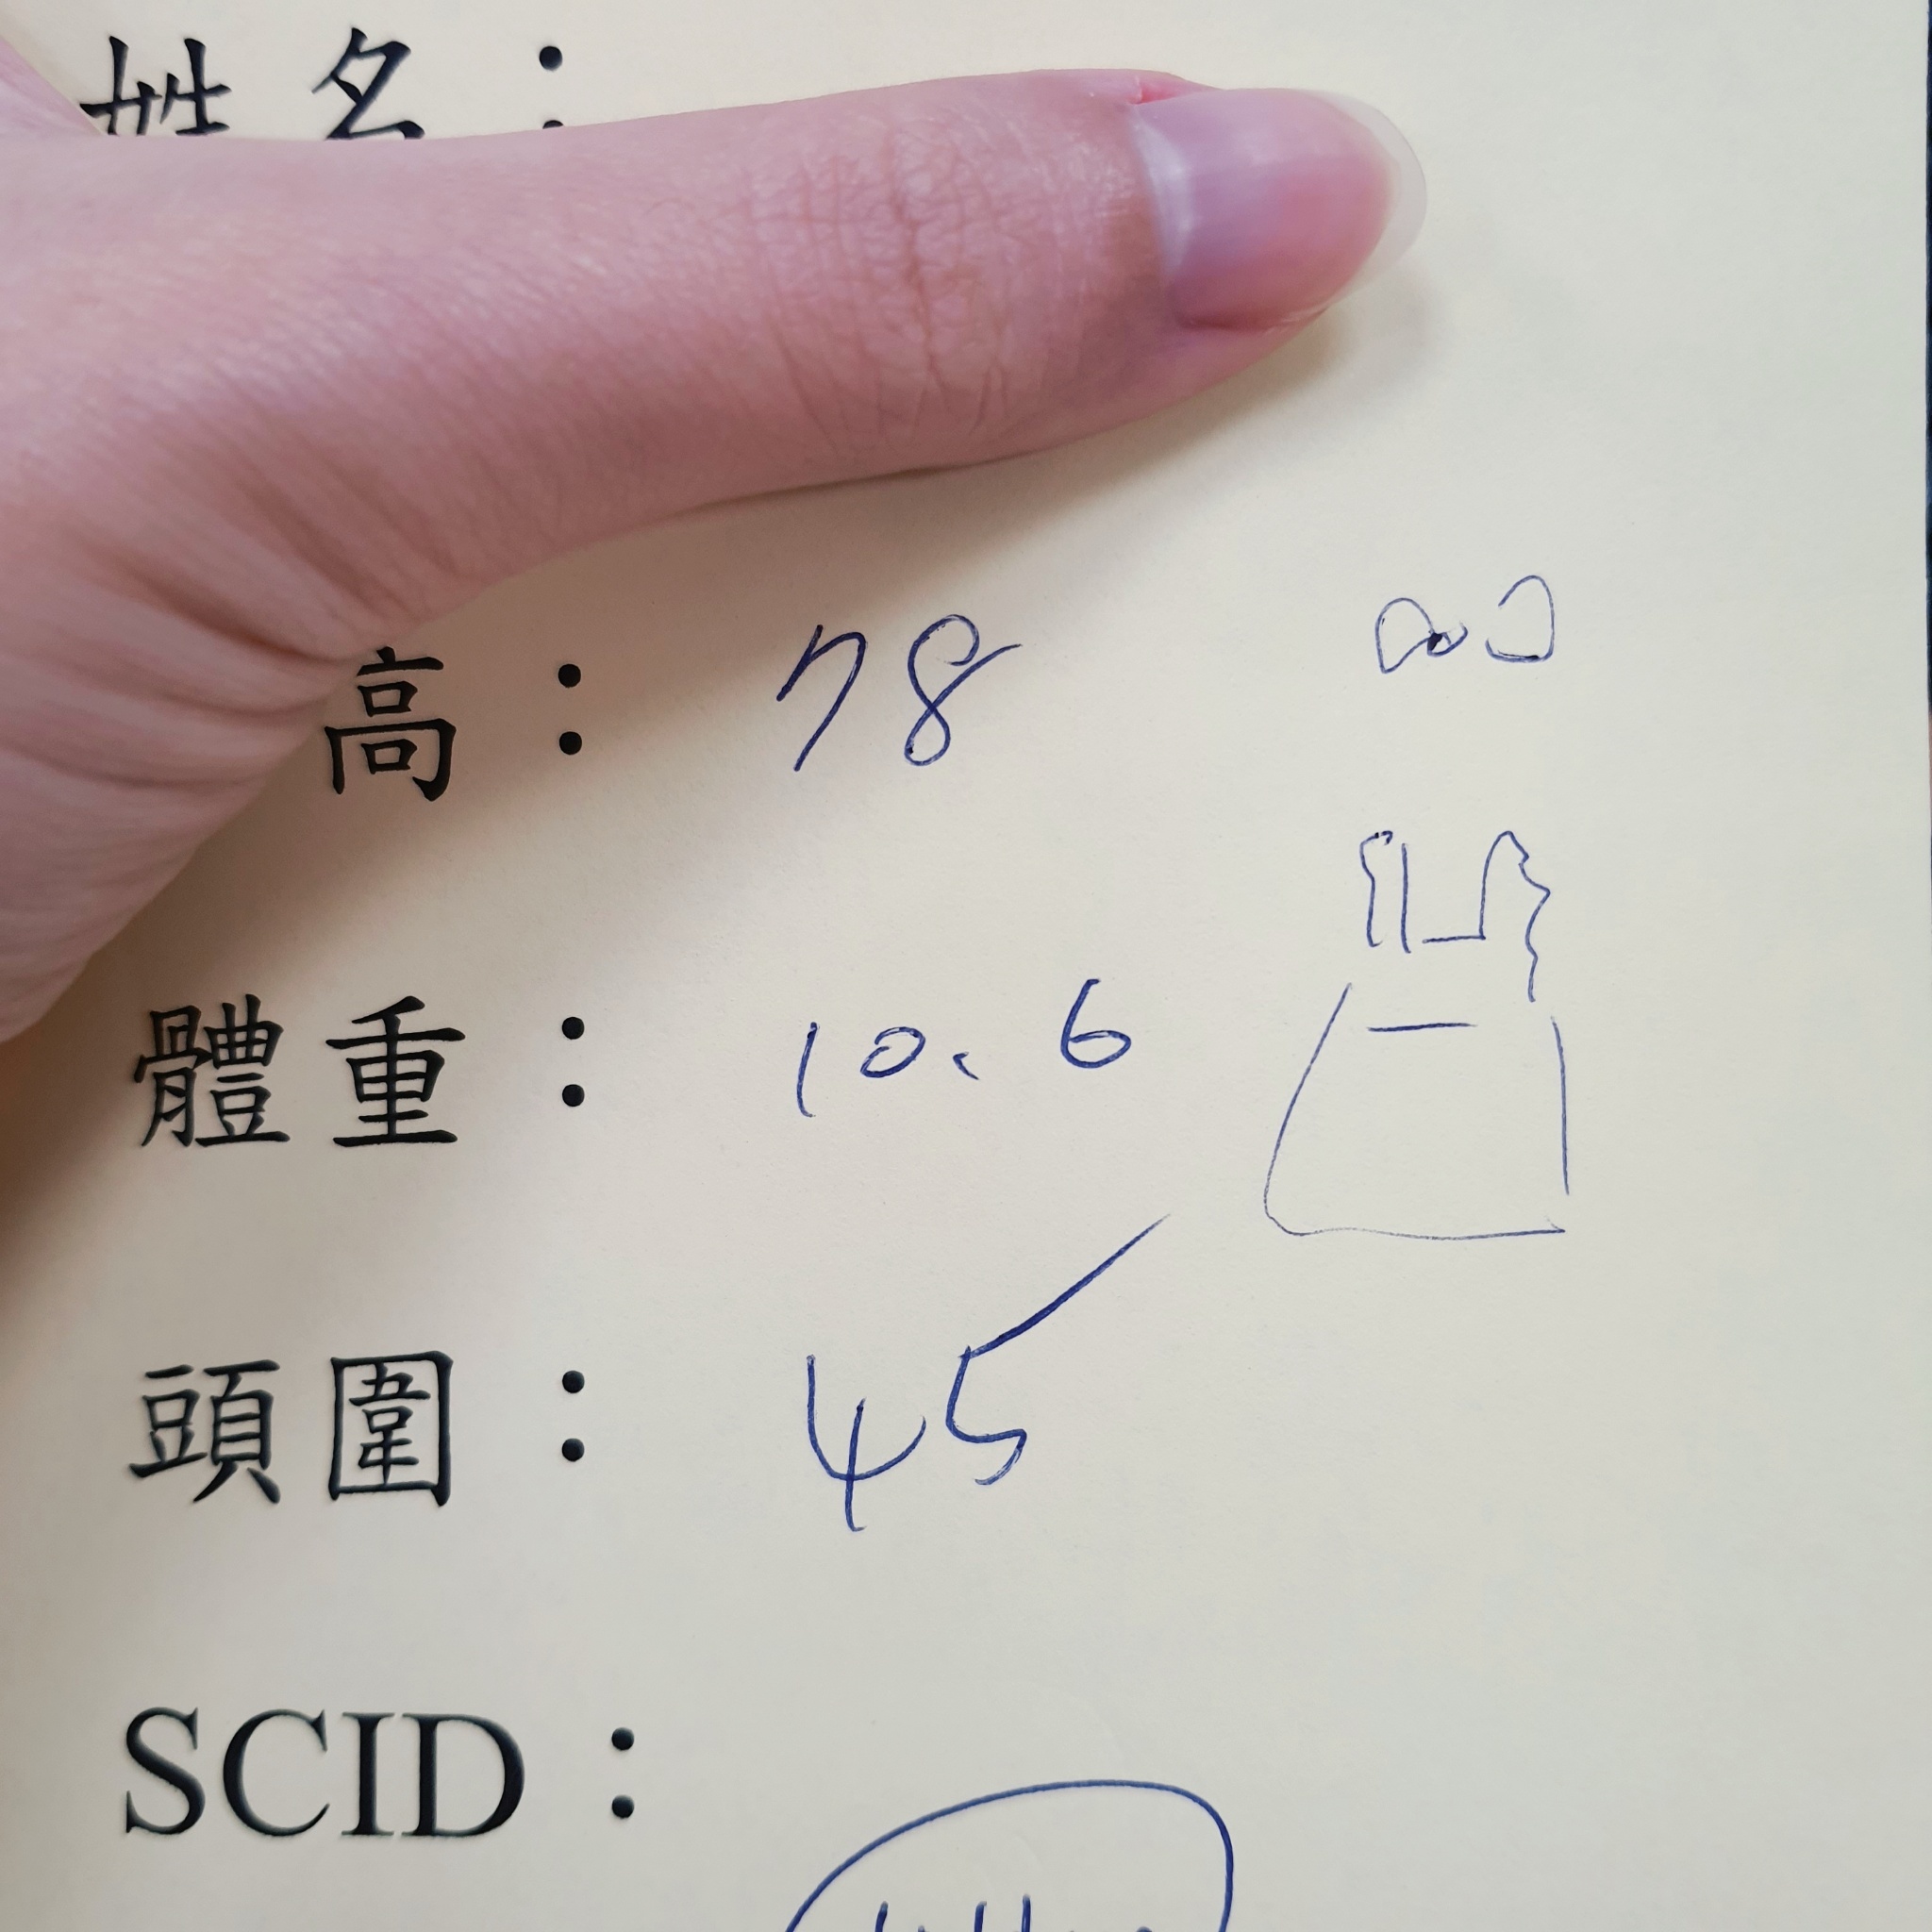 姓名：
高： 78
體重： 10.6
頭圍： 45
SCID：